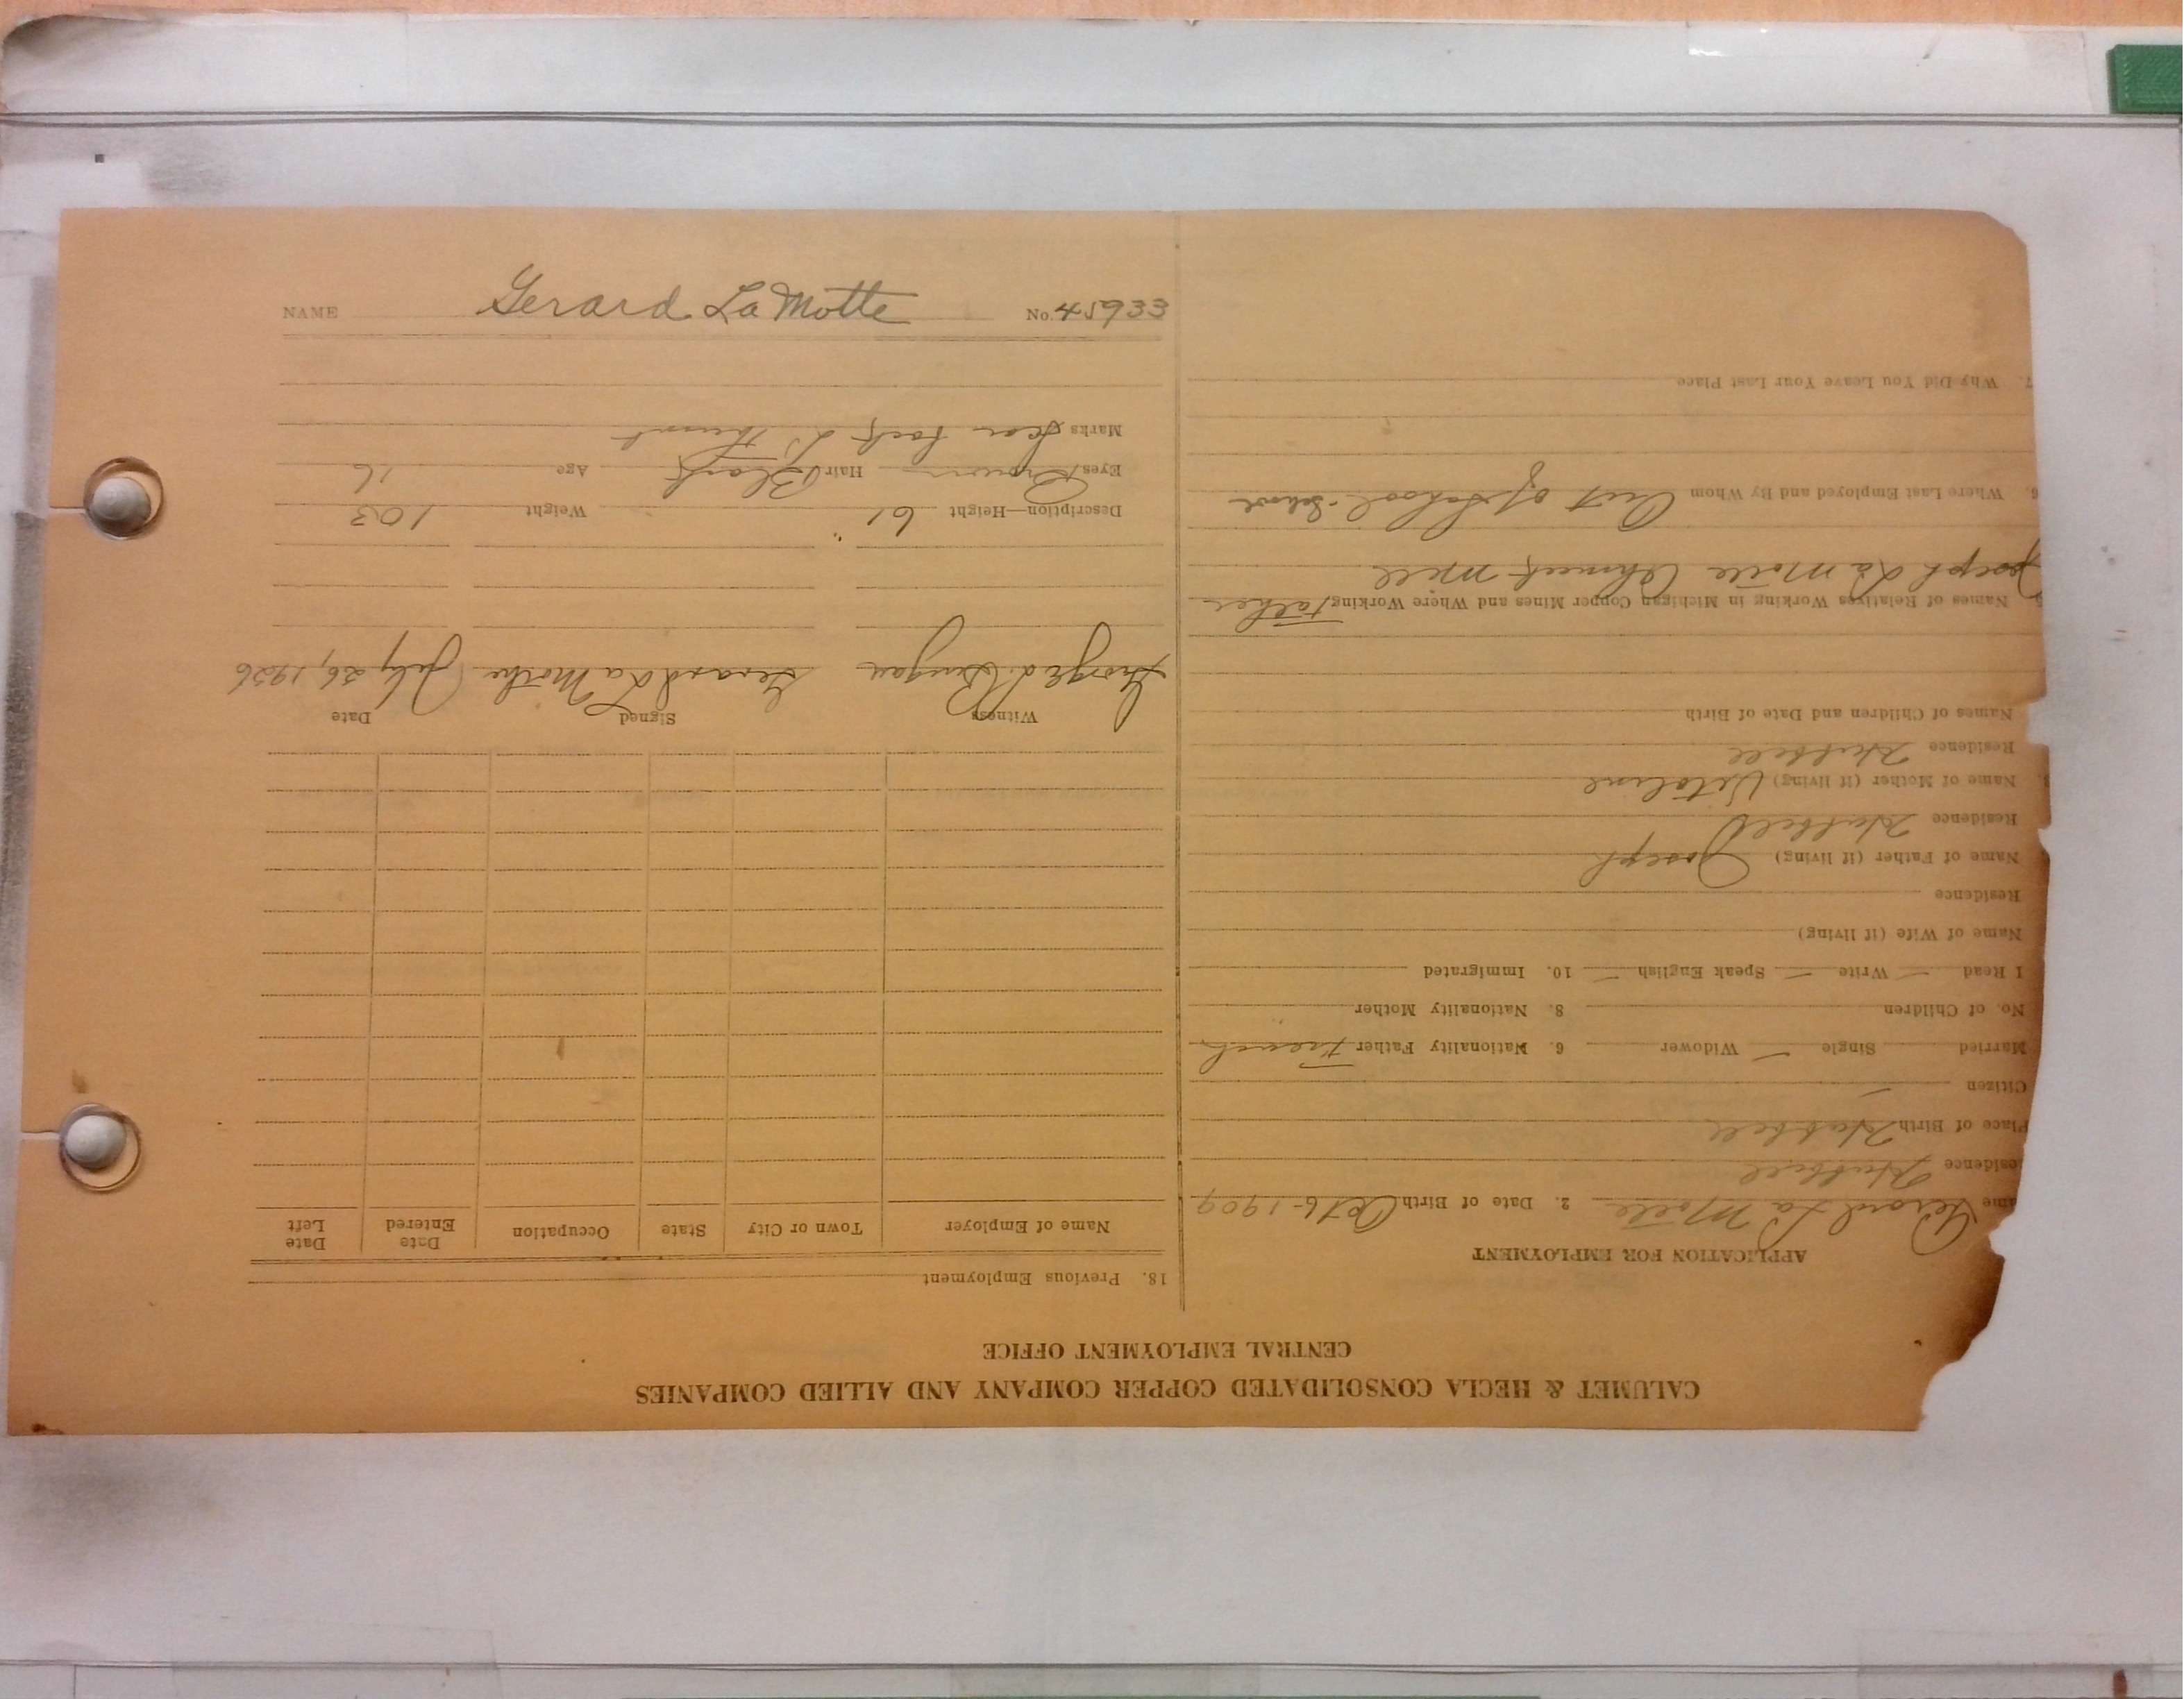 NAME Gerard La Motte No. 45933
CALUMET & HECLA CONSOLIDATED COPPER COMPANY AND ALLIED COMPANIES
CENTRAL EMPLOYMENT OFFICE
APPLICATION FOR EMPLOYMENT
ame Gerard La Motte 2. Date of Birth Oct 6-1909
esidence Hubbell
Place of Birth Hubbell
Citizen —
Married Single — Widower 6. Nationality Father French
No. of Children 8. Nationality Mother
I Read — Write — Speak English — 10. Immigrated
Name of Wife (if living)
Residence
Name of Father (if living) Joseph
Residence Hubbell
Name of Mother (if living) Vitaline
Residence Hubbell
Names of Children and Date of Birth
Names of Relatives Working in Michigan Copper Mines and Where Working Father
Joseph La Motte Ahmeek Mill
6. Where Last Employed and By Whom Out of School - School
7. Why Did You Leave Your Last Place
18. Previous Employment
Name of Employer Town or City State Occupation Date Entered Date Left
Witness Signed Date
George Gerard La Motte July 26, 1926
Description—Height 61" Weight 103
Eyes Brown Hair Black Age 16
Marks Scar back L. Thumb